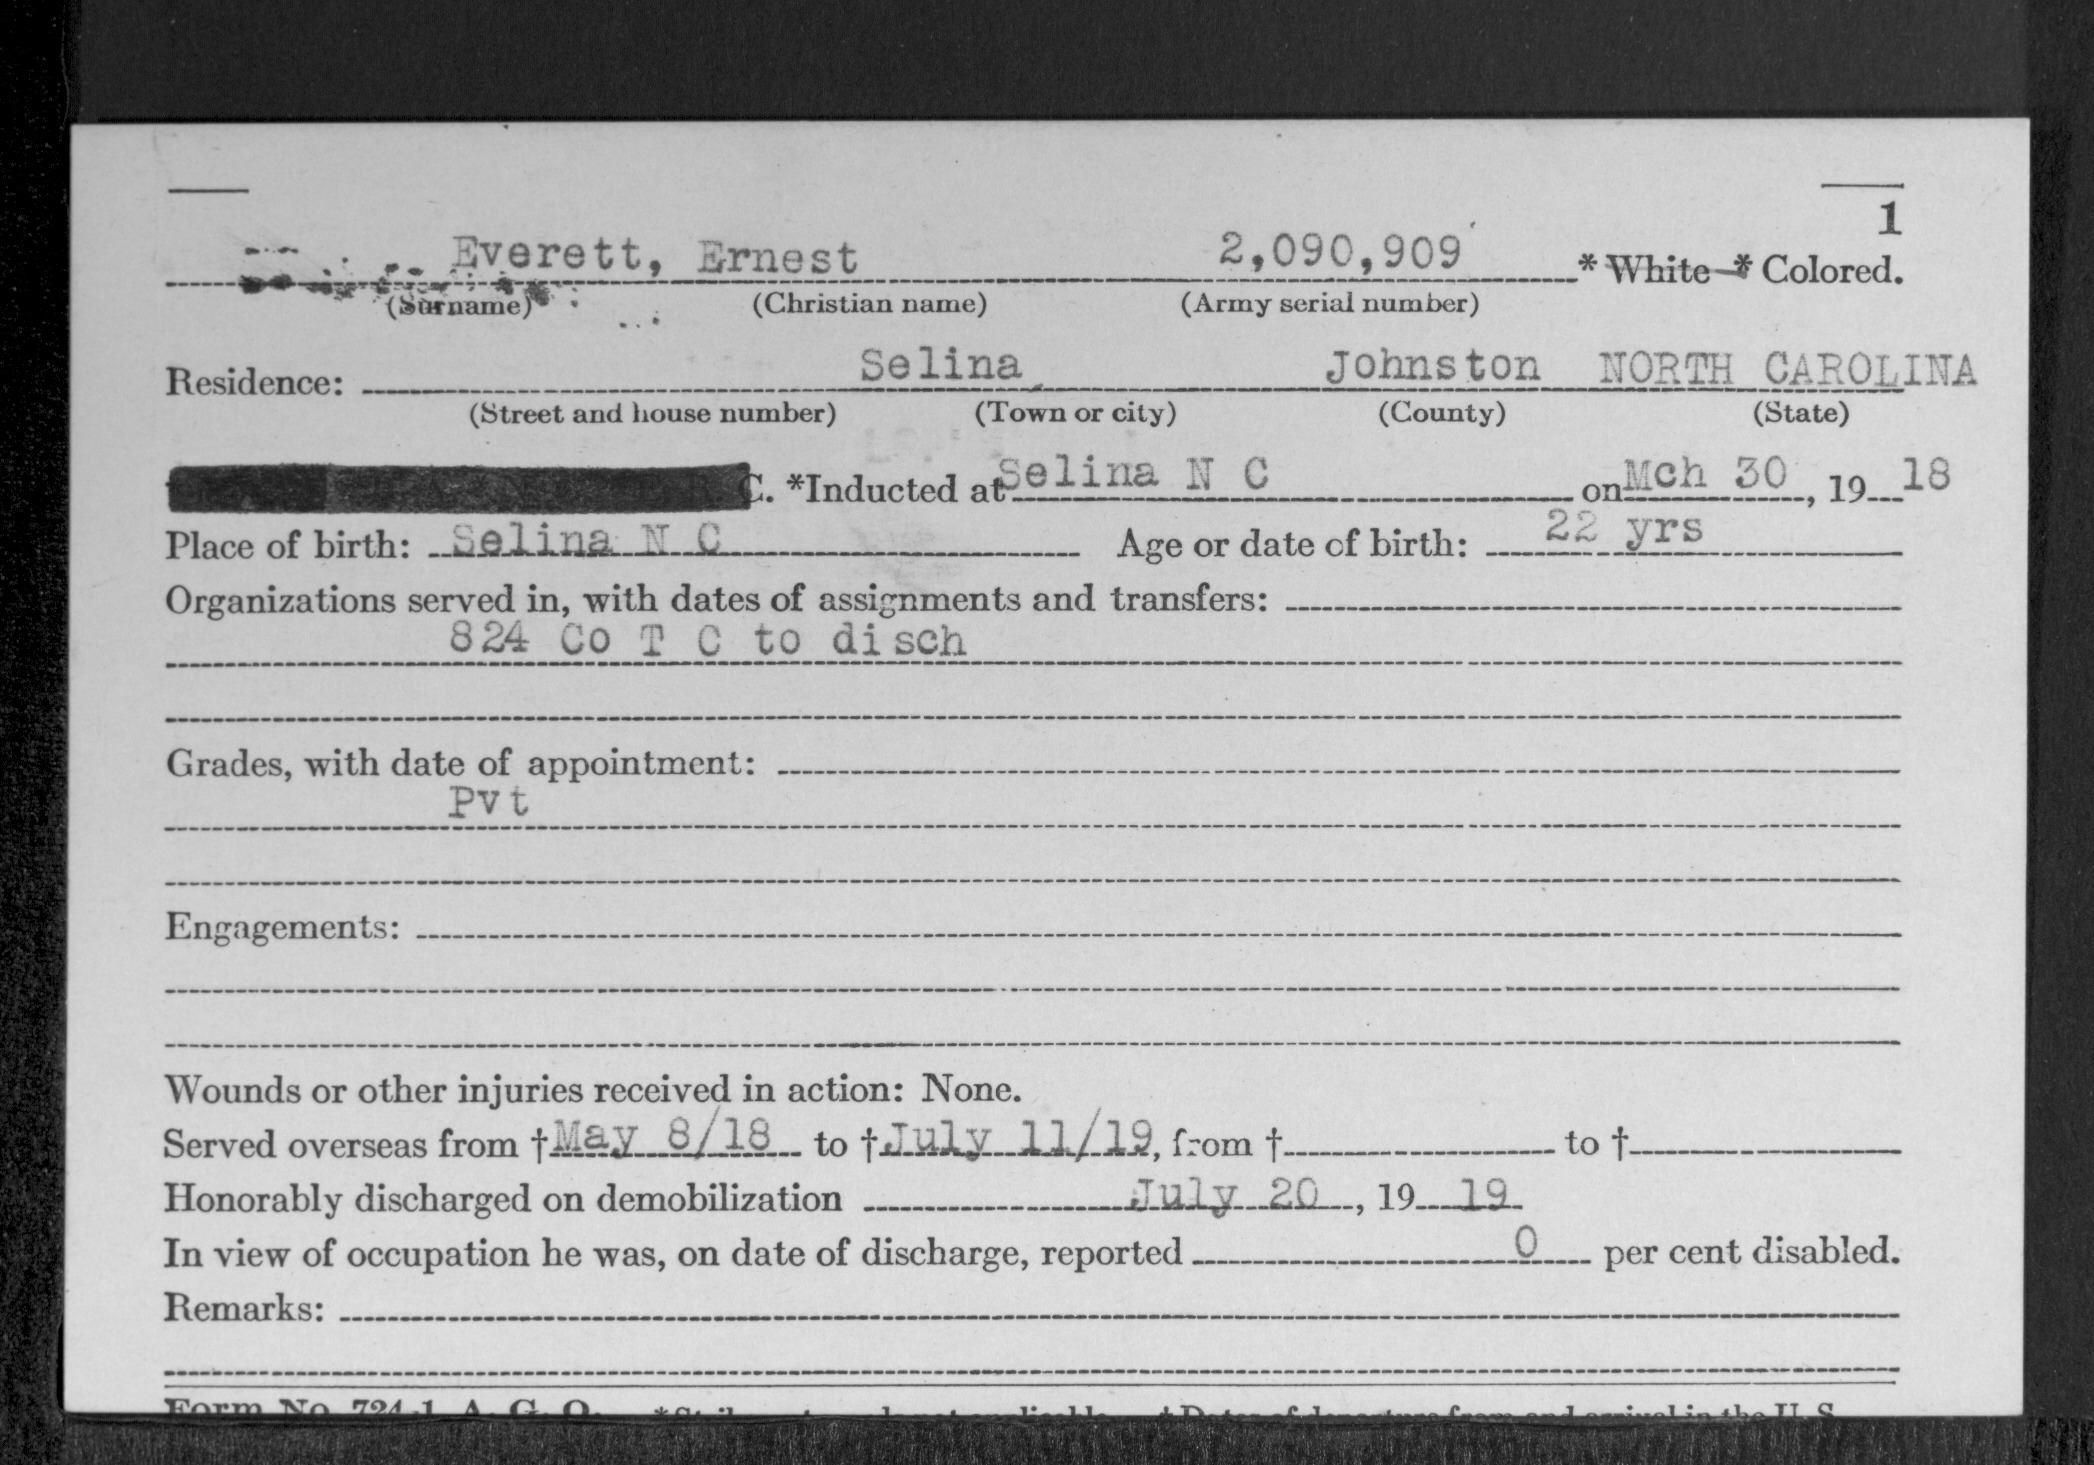 1
Everett, Ernest 2,090,909 * White * Colored.
(Surname) (Christian name) (Army serial number)
Residence: Selina Johnston NORTH CAROLINA
(Street and house number) (Town or city) (County) (State)
C. *Inducted at Selina N C on Mch 30, 19 18
Place of birth: Selina N C Age or date of birth: 22 yrs
Organizations served in, with dates of assignments and transfers:
824 Co T C to disch
Grades, with date of appointment:
Pvt
Engagements:
Wounds or other injuries received in action: None.
Served overseas from † May 8/18 to † July 11/19, from † to †
Honorably discharged on demobilization July 20, 19 19
In view of occupation he was, on date of discharge, reported 0 per cent disabled.
Remarks:
Form No. 724-1, A. G. O.